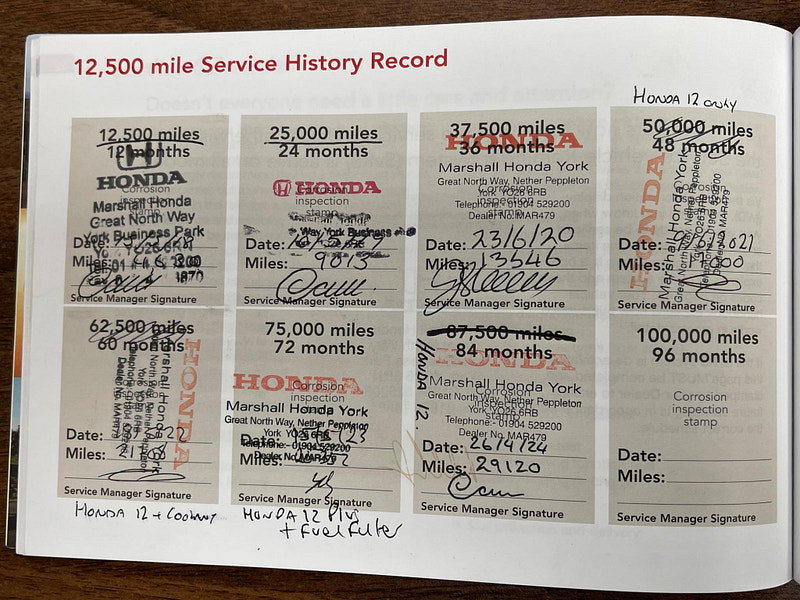 12,500 mile Service History Record
HONDA 12 only
12,500 miles
12 months
HONDA
Corrosion
Marshall Honda
Great North Way
York Business Park
YO26 6RB
Date:
Miles:
Service Manager Signature
25,000 miles
24 months
HONDA
Corrosion
inspection
stamp
Way, York Business
Date:
Miles: 9013
Service Manager Signature
37,500 miles
36 months
HONDA
Marshall Honda York
Great North Way, Nether Peppleton
York YO26 6RB
Corrosion
inspection
stamp
Telephone:- 01904 529200
Dealer No. MAR479
Date: 23/6/20
Miles: 13546
Service Manager Signature
50,000 miles
48 months
HONDA
Marshall Honda York
Great North Way, Nether Peppleton
York YO26 6RB
Telephone:- 01904 529200
Dealer No. MAR479
Date: 2021
Miles: 17000
Service Manager Signature
62,500 miles
60 months
HONDA
Marshall Honda York
Dealer No. MAR479
Date: 22
Miles:
Service Manager Signature
HONDA 12 + Coolant
75,000 miles
72 months
HONDA
Corrosion
inspection
stamp
Marshall Honda York
Great North Way, Nether Peppleton
York YO26 6RB
Telephone:- 01904 529200
Dealer No. MAR479
Date: 23
Miles:
Service Manager Signature
HONDA 12 Plus
+ Fuel Filter
87,500 miles
84 months
HONDA
HONDA 12.
Marshall Honda York
Corrosion
inspection
stamp
Great North Way, Nether Peppleton
York YO26 6RB
Telephone:- 01904 529200
Dealer No. MAR479
Date: 26/4/24
Miles: 29120
Service Manager Signature
100,000 miles
96 months
Corrosion
inspection
stamp
Date:
Miles:
Service Manager Signature